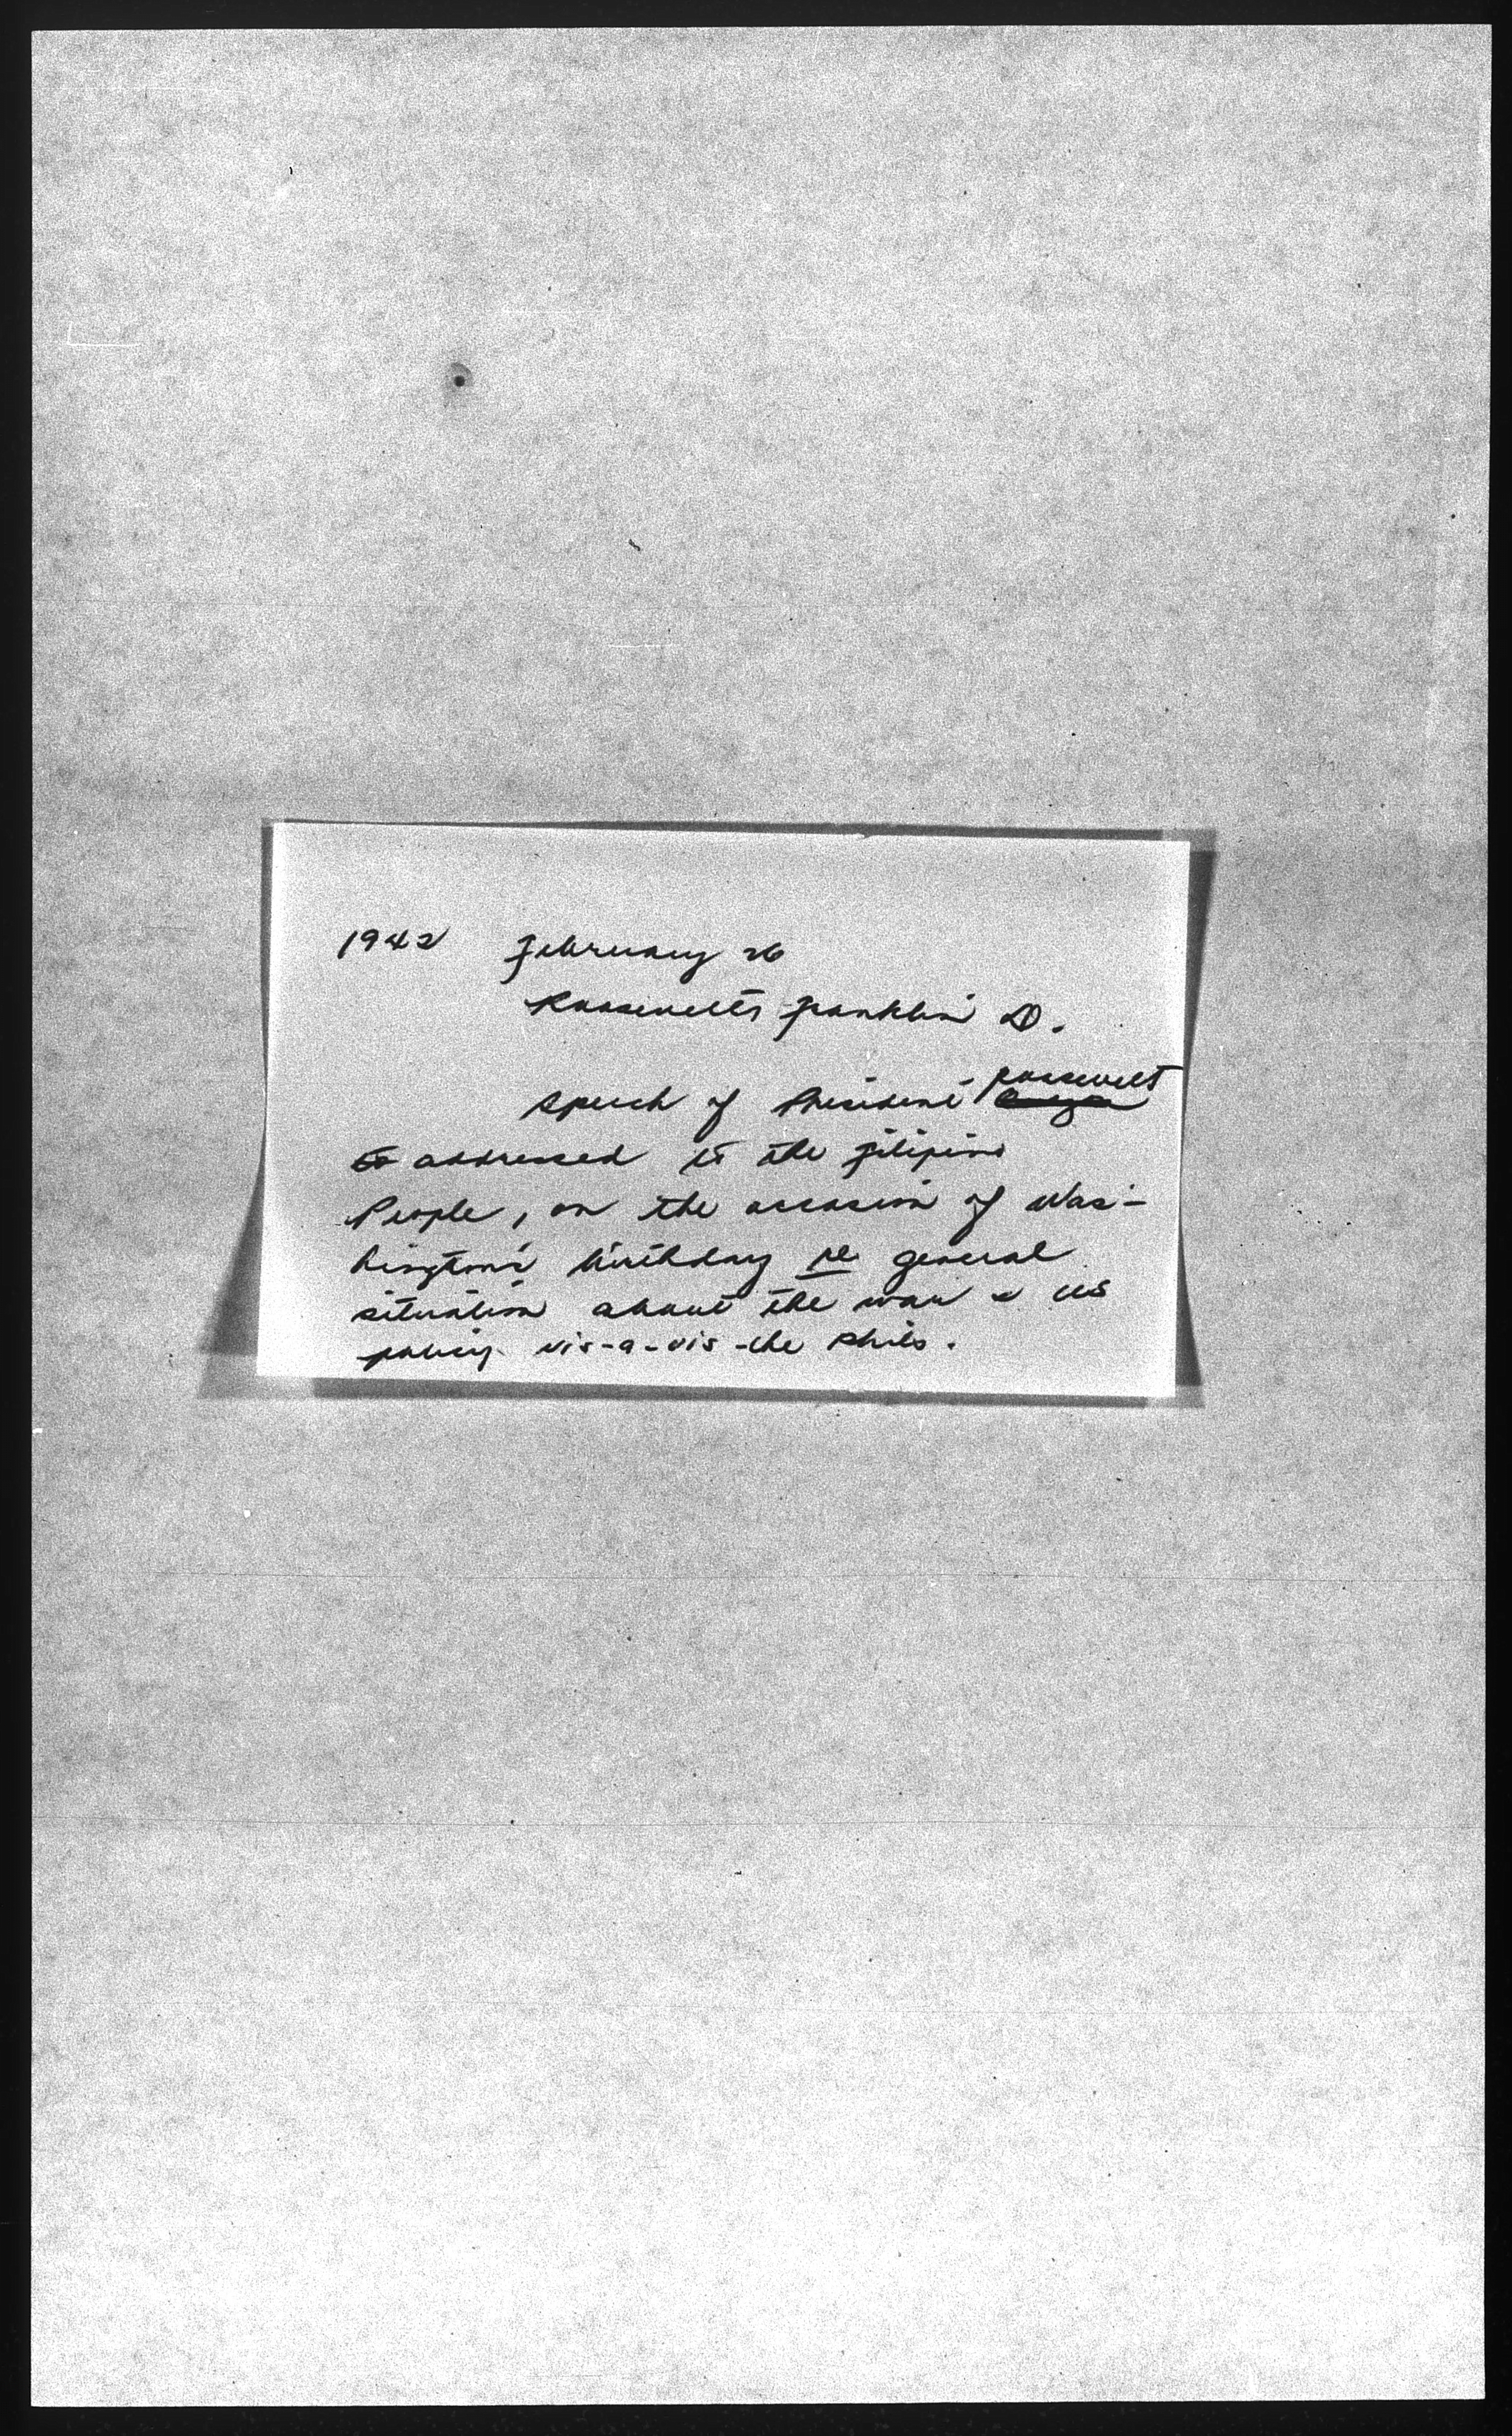 1942 February 26
Roosevelts Franklin D.
Speech of President Roosevelt
to addressed to the Filipino
People, on the occasion of Was-
hington's birthday re general
situation about the war & US
policy vis-a-vis the Phils.